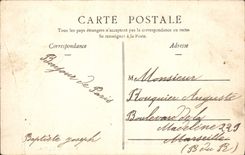 CARTE POSTALE
Tous les pays étrangers n'acceptent pas la correspondance au recto
Se renseigner à la Poste
Correspondance
Adresse
Bonjour de Paris
Baptiste Joseph
Monsieur
Rouquier Auguste
Boulevard de la
Madeleine 225
Marseille
(B du R)